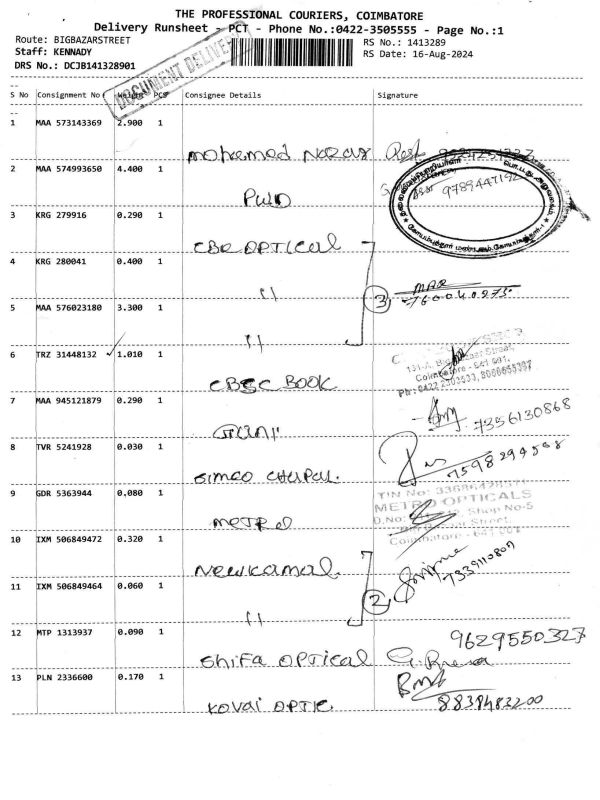 THE PROFESSIONAL COURIERS, COIMBATORE
Delivery Runsheet - PCT - Phone No.:0422-3505555 - Page No.:1
Route: BIGBAZARSTREET
RS No.: 1413289
Staff: KENNADY
RS Date: 16-Aug-2024
DRS No.: DCJB141328901
DOCUMENT DELIVER
S No Consignment No Weight PCS Consignee Details Signature
1 MAA 573143369 2.900 1
mohamed Nazar
2 MAA 574993650 4.400 1
PWD 9789447192
3 KRG 279916 0.290 1
CBE OPTICAL
4 KRG 280041 0.400 1
11 3
5 MAA 576023180 3.300 1
11
6 TRZ 31448132 1.010 1
CBSC BOOK
7 MAA 945121879 0.290 1
7356130868
8 TVR 5241928 0.030 1
9 GDR 5363944 0.080 1
METRO OPTICALS
Shop No-5
metro
10 IXM 506849472 0.320 1
Newkamal
11 IXM 506849464 0.060 1
11 2
12 MTP 1313937 0.090 1
9629550327
Shifa optical
13 PLN 2336600 0.170 1
Kovai optic
8838483200